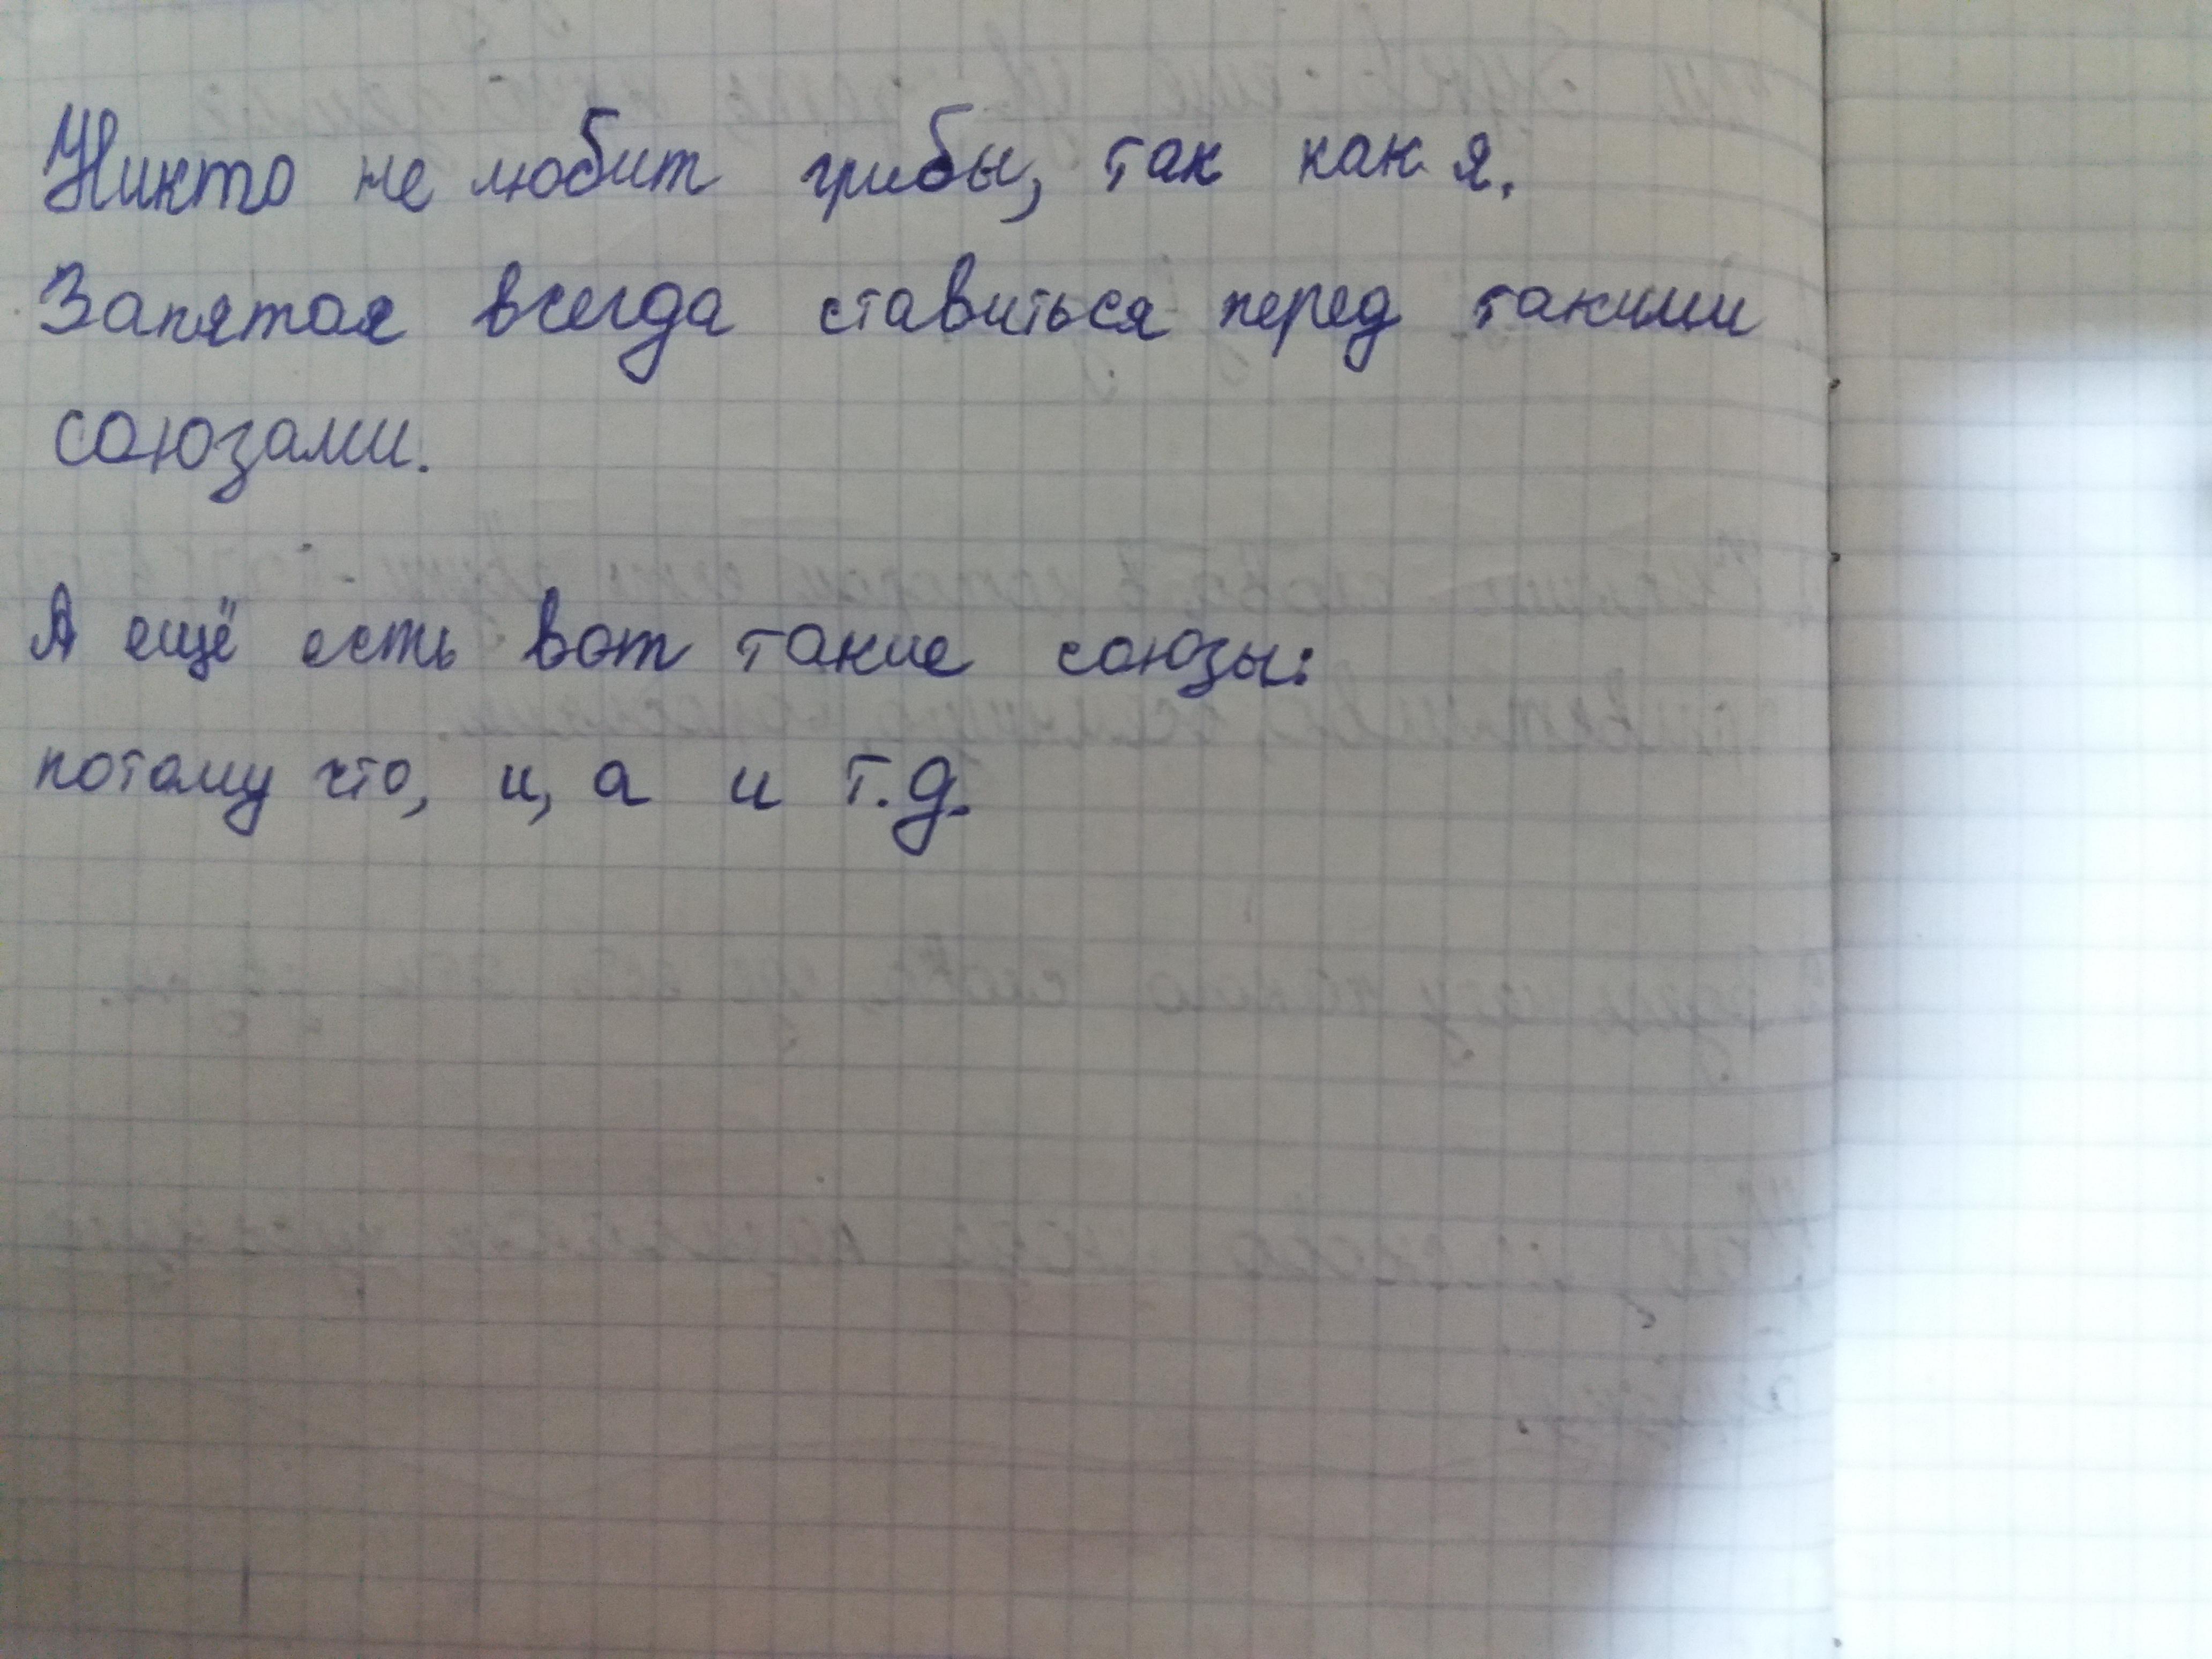 Никто не любит грибы, так как я.
Запятая всегда ставиться перед такими
союзами.
А ещё есть вот такие союзы:
потому что, и, а и т.д.